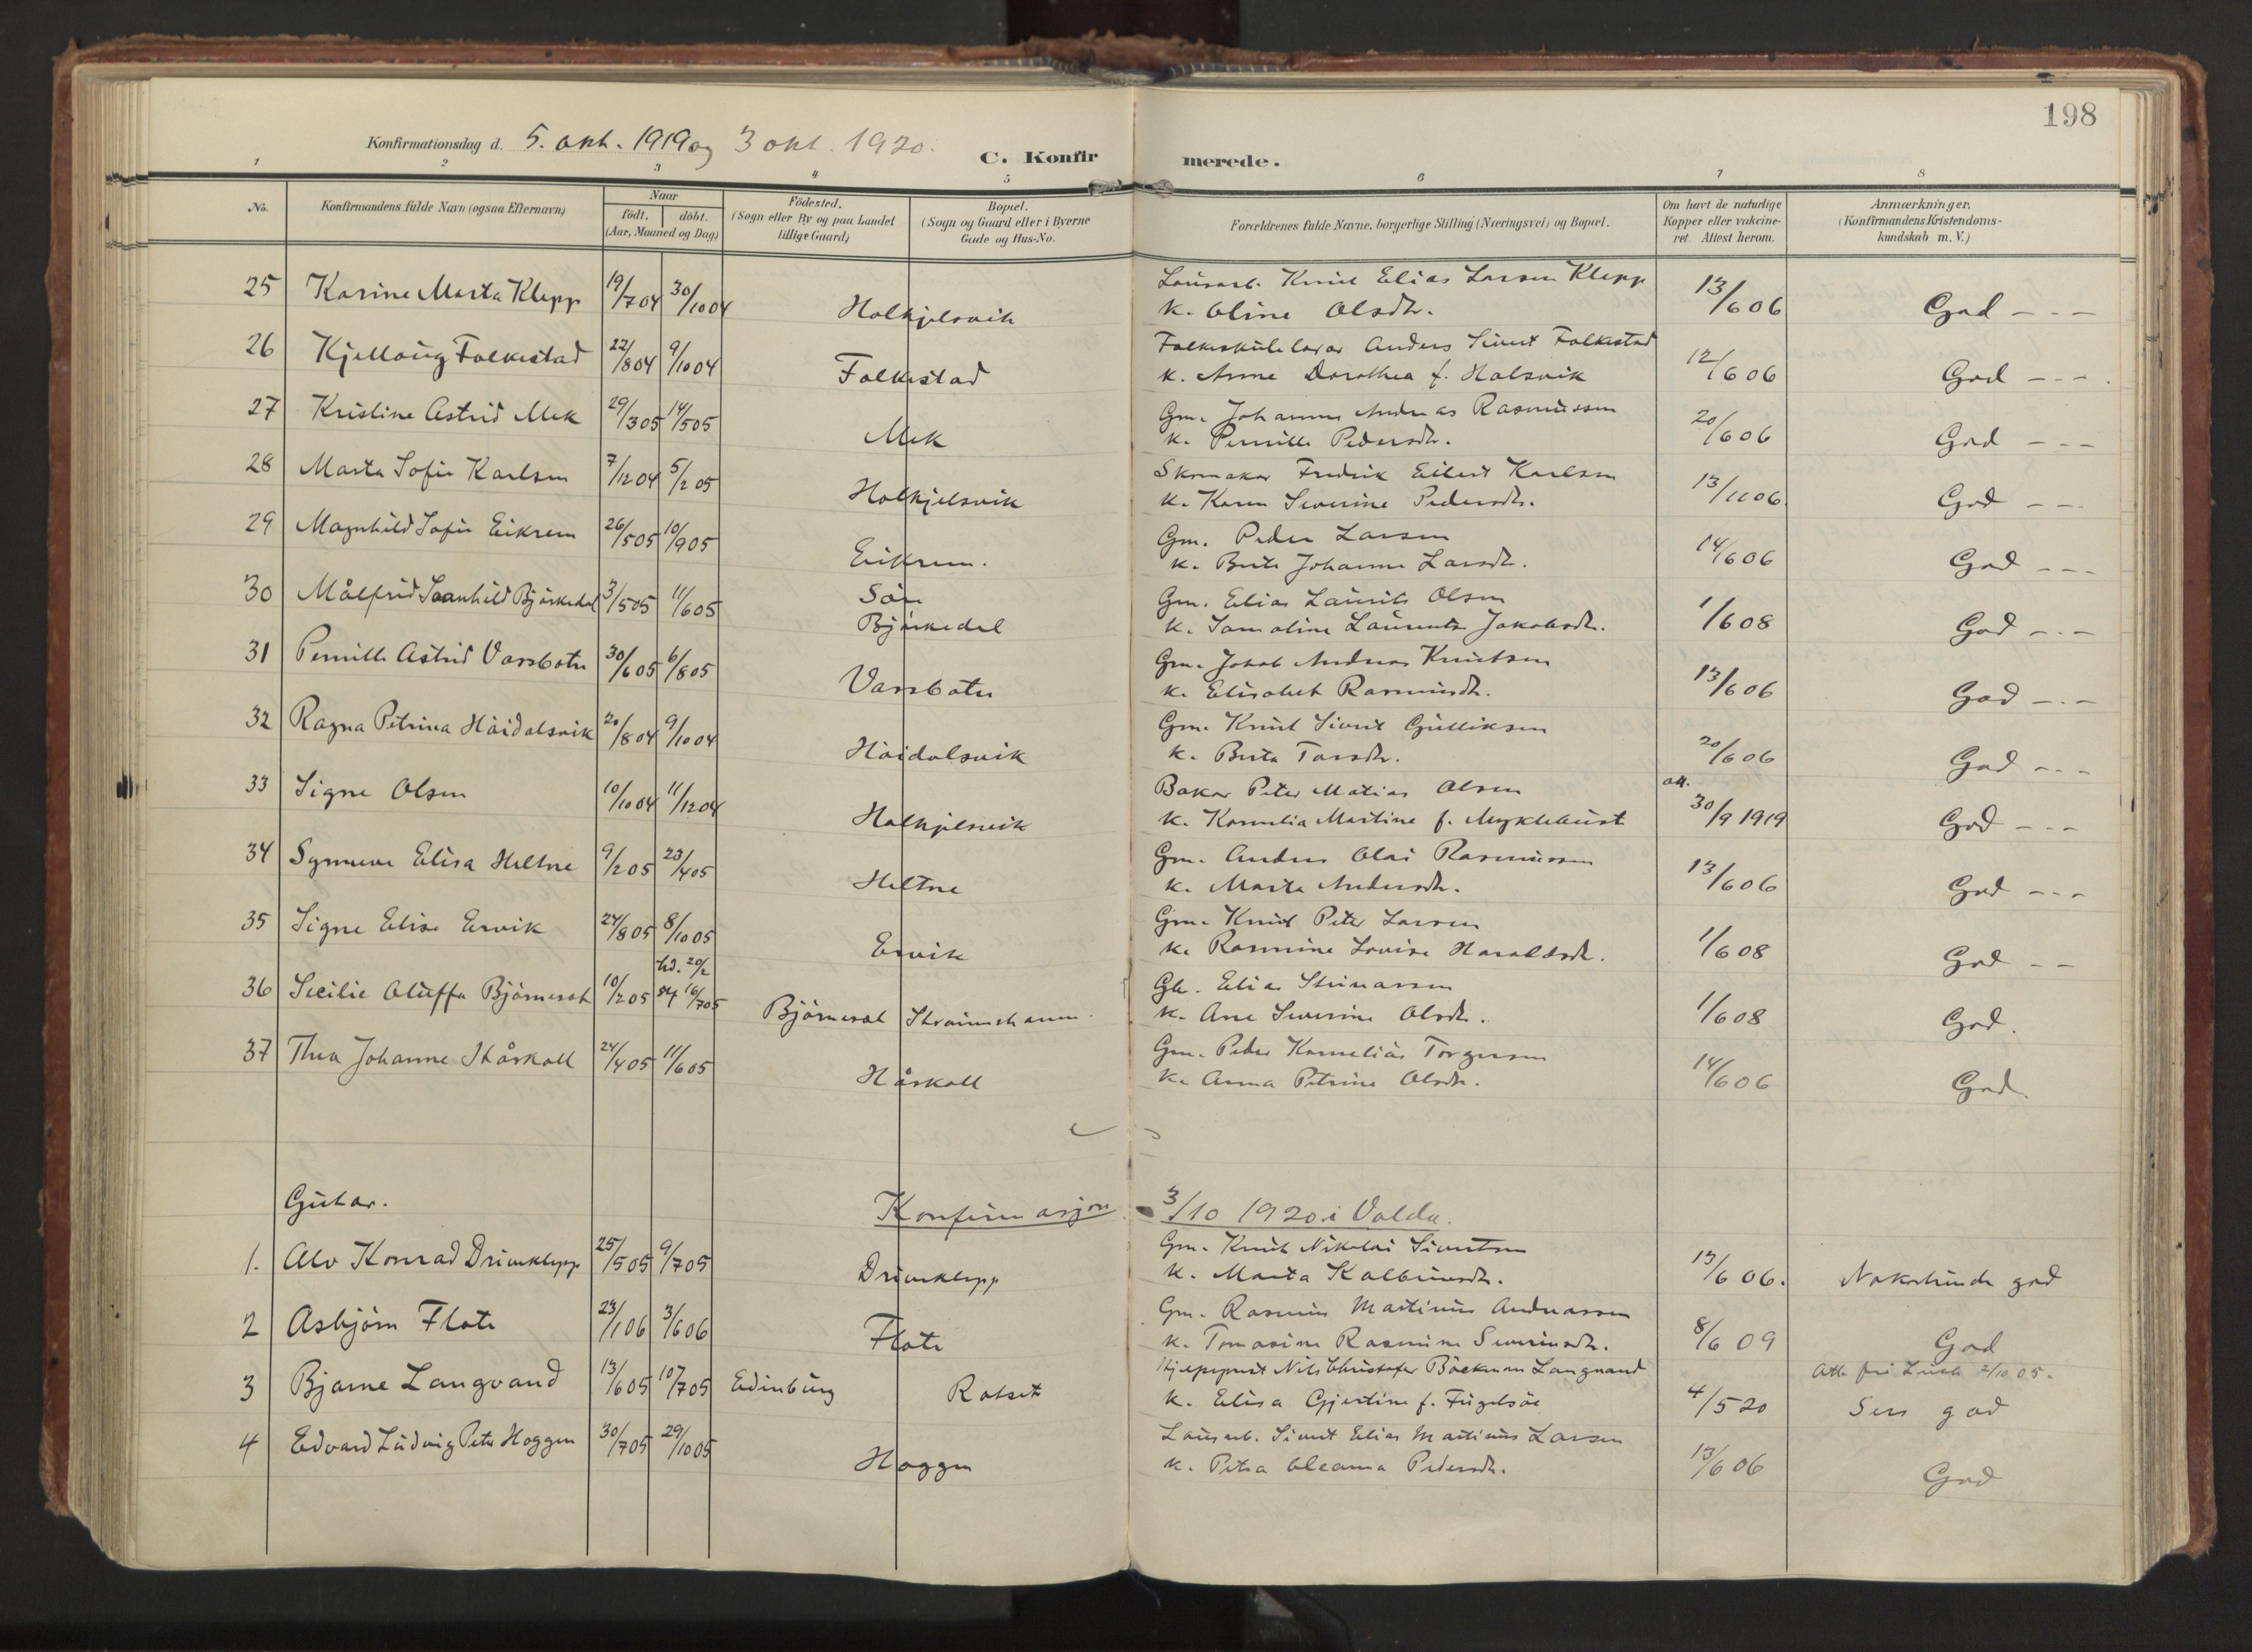 198
Konfirmationsdag d. 5. okt. 1919 og 3 okt. 1920.
C. Konfir merede.
1 2 3 4 5 6 7 8
No.
Konfirmandens fulde Navn (ogsaa Efternavn)
Naar
födt. döbt.
(Aar, Maaned og Dag)
Födested.
(Sogn eller By og paa Landet
tillige Gaard)
Bopæl.
(Sogn og Gaard eller i Byerne
Gade og Hus-No.
Forældrenes fulde Navne, borgerlige Stilling (Næringsvei) og Bopæl.
Om havt de naturlige
Kopper eller vakcine-
ret. Attest herom.
Anmærkninger,
(Konfirmandens Kristendoms-
kundskab m. V.)
25 Karine Marta Klepp 19/7 04 30/10 04 Holkjelsvik
Lausarb. Knut Elias Larsen Klepp
k. Oline Olsdtr. 13/6 06 God - - -
26 Kjellaug Folkestad 22/8 04 9/10 04 Folkestad
Folkeskulelærar Anders Sivert Folkestad
k. Anne Dorothea f. Halsvik 12/6 06 God - - -
27 Kristine Astrid Mek 29/3 05 14/5 05 Mek
Gm. Johannes Andreas Rasmussen
k. Pernille Pedersdtr. 20/6 06 God - - -
28 Marta Sofie Karlsen 7/12 04 5/2 05 Holkjelsvik
Skomakar Fredrik Eilert Karlsen
k. Karen Severine Pedersdtr. 13/11 06. God - -
29 Magnhild Sofie Eikrem 26/5 05 10/9 05 Eikrem.
Gm. Peder Larsen
k. Berte Johanne Larsdtr. 14/6 06 God - - -
30 Målfrid Svanhild Bjørkedal 3/5 05 11/6 05 Sør
Bjørkedal
Gm. Elias Laurits Olsen
k. Samoline Laurentse Jakobsdtr. 1/6 08 God - - -
31 Pernille Astrid Vassbotn 30/6 05 6/8 05 Vassbotn
Gm. Jakob Andreas Knutsen
k. Elisabet Rasmusdtr. 13/6 06 God - - -
32 Ragna Petrina Høidalsvik 20/8 04 9/10 04 Høidalsvik
Gm. Knut Sivert Gulliksen
k. Berta Larsdtr. 20/6 06 God - - -
33 Signe Olsen 10/10 04 11/12 04 Holkjelsvik
Bakar Peter Matias Olsen
k. Kornelia Martine f. Myklebust att. 30/9 1919 God - - -
34 Synneve Elisa Heltne 9/2 05 23/4 05 Heltne
Gm. Anders Olai Rasmussen
k. Marta Andersdtr. 13/6 06 God - - -
35 Signe Elise Ervik 24/8 05 8/10 05 Ervik
Gm. Knut Peter Larsen
k. Rasmine Lovise Haraldsdtr. 1/6 08 God - -
36 Secilie Oluffa Bjørneset 10/2 05 hd. 20/2 st 16/7 05 Bjørneset Straumshamn
Gbr. Elias Steinarsen
k. Ane Severine Olsdtr. 1/6 08 God.
37 Thea Johanne Håskoll 24/4 05 11/6 05 Håskoll
Gm. Peder Kornelius Torgersen
k. Anna Petrine Olsdtr. 14/6 06 God.
Gutar. Konfirmasjon 3/10 1920 i Volda.
1. Alv Konrad Driveklepp 25/5 05 9/7 05 Driveklepp
Gm. Knut Nikolai Sivertsen
k. Marta Kolbeinsdtr. 13/6 06. Nokorlunde god
2 Asbjørn Flote 23/1 06 3/6 06 Flote
Gm. Rasmus Martinus Andreassen
k. Tomasine Rasmine Severinsdtr. 8/6 09 God
3 Bjarne Langvand 13/6 05 10/7 05 Edinburg Rotset
Hjelpeprest Nils Christofer Böckman Langvand
k. Elisa Gjertine f. Fugelsøe 4/5 20 Att. frå Leith 2/10 05.
Sers god
4 Edvard Ludvig Peter Hoggen 30/7 05 29/10 05 Hoggen
Lausarb. Sivert Elias Martinus Larsen
k. Petra Oleanna Pedersdtr. 13/6 06 God